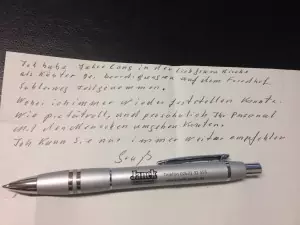 Ich habe Jahrelang in der Liebfrauen Kirche
als Küster Be. beerdigungen auf dem Friedhof
teilgenommen.
Wobei ich immer wieder feststellen konnte.
Wie pietätvoll, und persönlich Ihr Personal
mit den Menschen umgehen konten.
Ich kann Sie nur immer weiter empfehlen
Gruß